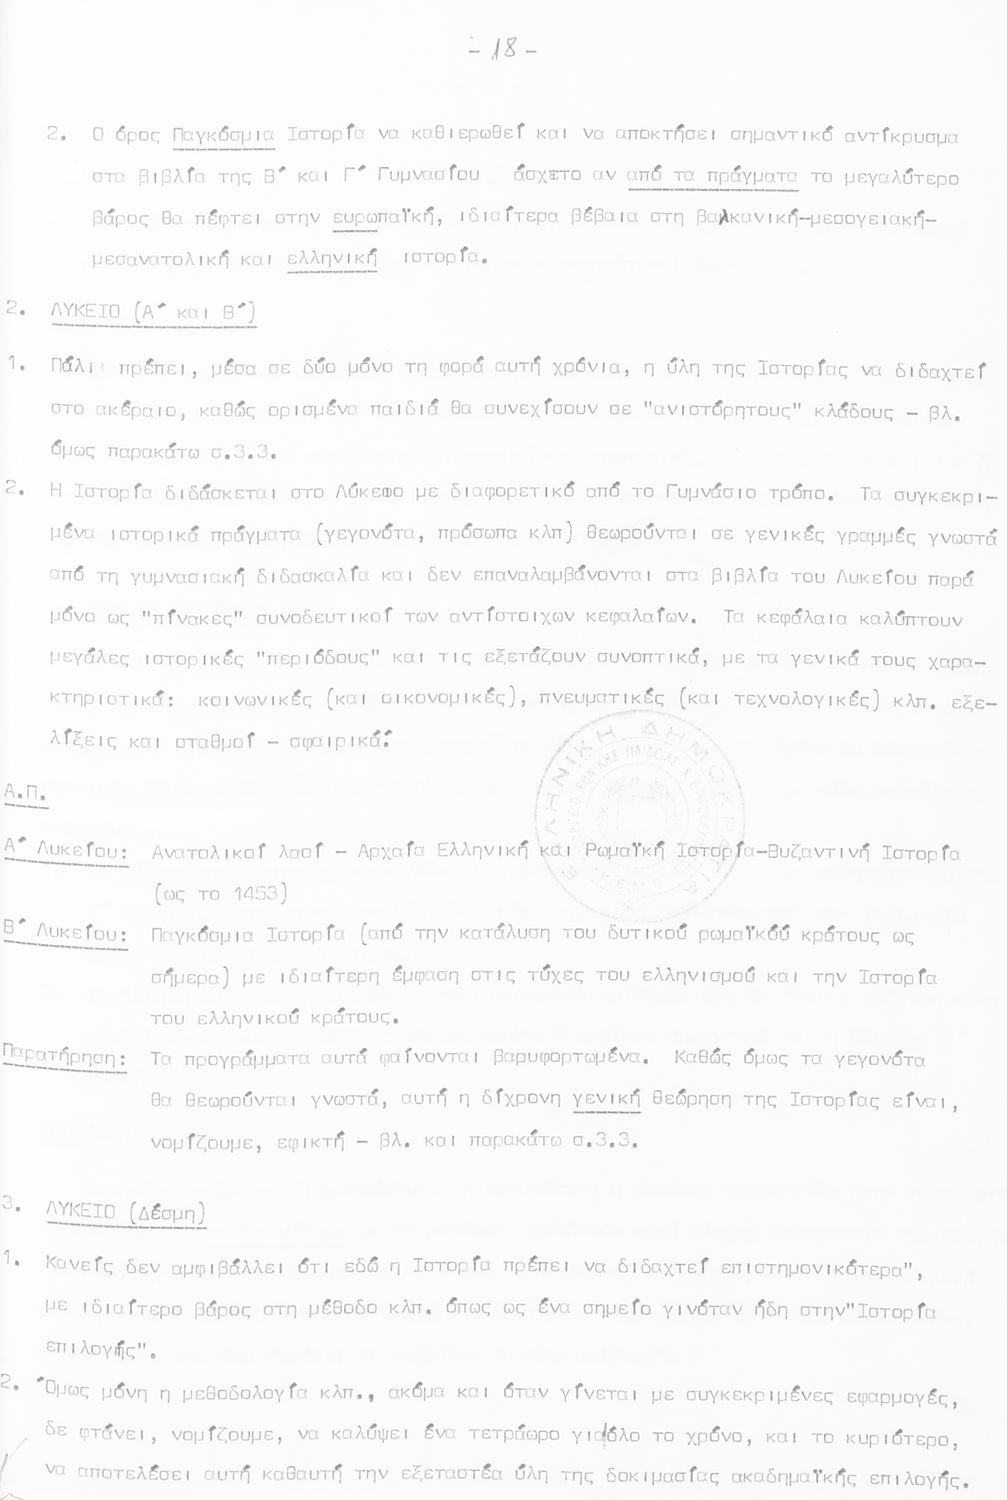 - 18 -
2. Ο όρος Παγκόσμια Ιστορία να καθιερωθεί και να αποκτήσει σημαντικό αντίκρυσμα
στα βιβλία της Β΄ και Γ΄ Γυμνασίου άσχετο αν από τα πράγματα το μεγαλύτερο
βάρος θα πέφτει στην ευρωπαϊκή, ιδιαίτερα βέβαια στη βαλκανική-μεσογειακή-
μεσανατολική και ελληνική ιστορία.
2. ΛΥΚΕΙΟ (Α΄ και Β΄)
1. Πάλι πρέπει, μέσα σε δύο μόνο τη φορά αυτή χρόνια, η ύλη της Ιστορίας να διδαχτεί
στο ακέραιο, καθώς ορισμένα παιδιά θα συνεχίσουν σε "ανιστόρητους" κλάδους - βλ.
όμως παρακάτω σ.3.3.
2. Η Ιστορία διδάσκεται στο Λύκειο με διαφορετικό από το Γυμνάσιο τρόπο. Τα συγκεκρι-
μένα ιστορικά πράγματα (γεγονότα, πρόσωπα κλπ) θεωρούνται σε γενικές γραμμές γνωστά
από τη γυμνασιακή διδασκαλία και δεν επαναλαμβάνονται στα βιβλία του Λυκείου παρά
μόνο ως "πίνακες" συνοδευτικοί των αντίστοιχων κεφαλαίων. Τα κεφάλαια καλύπτουν
μεγάλες ιστορικές "περιόδους" και τις εξετάζουν συνοπτικά, με τα γενικά τους χαρα-
κτηριστικά: κοινωνικές (και οικονομικές), πνευματικές (και τεχνολογικές) κλπ. εξε-
λίξεις και σταθμοί - σφαιρικά:
Α.Π.
Α΄ Λυκείου: Ανατολικοί λαοί - Αρχαία Ελληνική και Ρωμαϊκή Ιστορία-Βυζαντινή Ιστορία
(ως το 1453)
Β΄ Λυκείου: Παγκόσμια Ιστορία (από την κατάλυση του δυτικού ρωμαϊκού κράτους ως
σήμερα) με ιδιαίτερη έμφαση στις τύχες του ελληνισμού και την Ιστορία
του ελληνικού κράτους.
Παρατήρηση: Τα προγράμματα αυτά φαίνονται βαρυφορτωμένα. Καθώς όμως τα γεγονότα
θα θεωρούνται γνωστά, αυτή η δίχρονη γενική θεώρηση της Ιστορίας είναι,
νομίζουμε, εφικτή - βλ. και παρακάτω σ.3.3.
3. ΛΥΚΕΙΟ (Δέσμη)
1. Κανείς δεν αμφιβάλλει ότι εδώ η Ιστορία πρέπει να διδαχτεί επιστημονικότερα",
με ιδιαίτερο βάρος στη μέθοδο κλπ. όπως ως ένα σημείο γινόταν ήδη στην"Ιστορία
επιλογής".
2. Όμως μόνη η μεθοδολογία κλπ., ακόμα και όταν γίνεται με συγκεκριμένες εφαρμογές,
δε φτάνει, νομίζουμε, να καλύψει ένα τετράωρο για όλο το χρόνο, και το κυριότερο,
να αποτελέσει αυτή καθαυτή την εξεταστέα ύλη της δοκιμασίας ακαδημαϊκής επιλογής.
ΕΛΛΗΝΙΚΗ ΔΗΜΟΚΡΑΤΙΑ